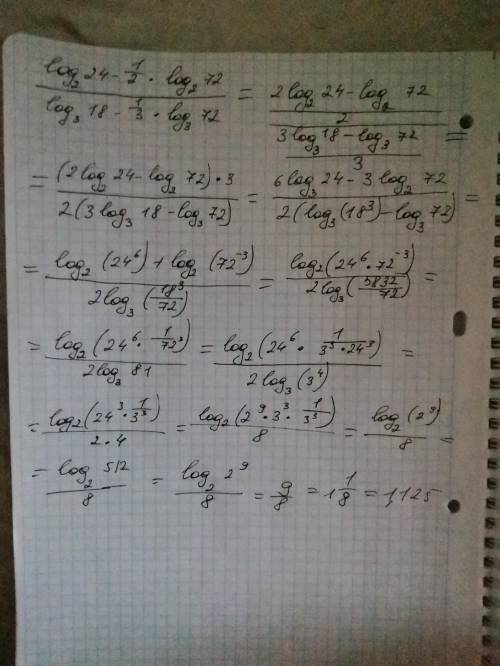 (log₂ 24 - 1/2 · log₂ 72)/(log₃ 18 - 1/3 · log₃ 72) = ((2log₂ 24 - log₂ 72)/2)/((3log₃ 18 - log₃ 72)/3) =
= ((2log₂ 24 - log₂ 72) · 3)/(2(3log₃ 18 - log₃ 72)) = (6log₃ 24 - 3log₂ 72)/(2(log₃(18³) - log₃ 72)) =
= (log₂(24⁶) + log₂(72⁻³))/(2log₃(18³/72)) = (log₂(24⁶ · 72⁻³))/(2log₃(5832/72)) =
= (log₂(24⁶ · 1/72³))/(2log₃ 81) = (log₂(24⁶ · 1/(3³ · 24³)))/(2log₃(3⁴)) =
= (log₂(24³ · 1/3³))/(2 · 4) = (log₂(2⁹ · 3³ · 1/3³))/8 = (log₂(2⁹))/8 =
= (log₂ 512)/8 = (log₂ 2⁹)/8 = 9/8 = 1 1/8 = 1,125